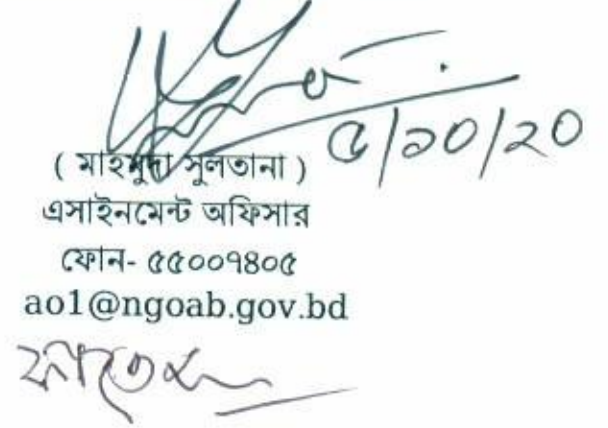 ৫/১০/২০
( মাহমুদা সুলতানা )
এসাইনমেন্ট অফিসার
ফোন- ৫৫০০৭৪০৫
ao1@ngoab.gov.bd